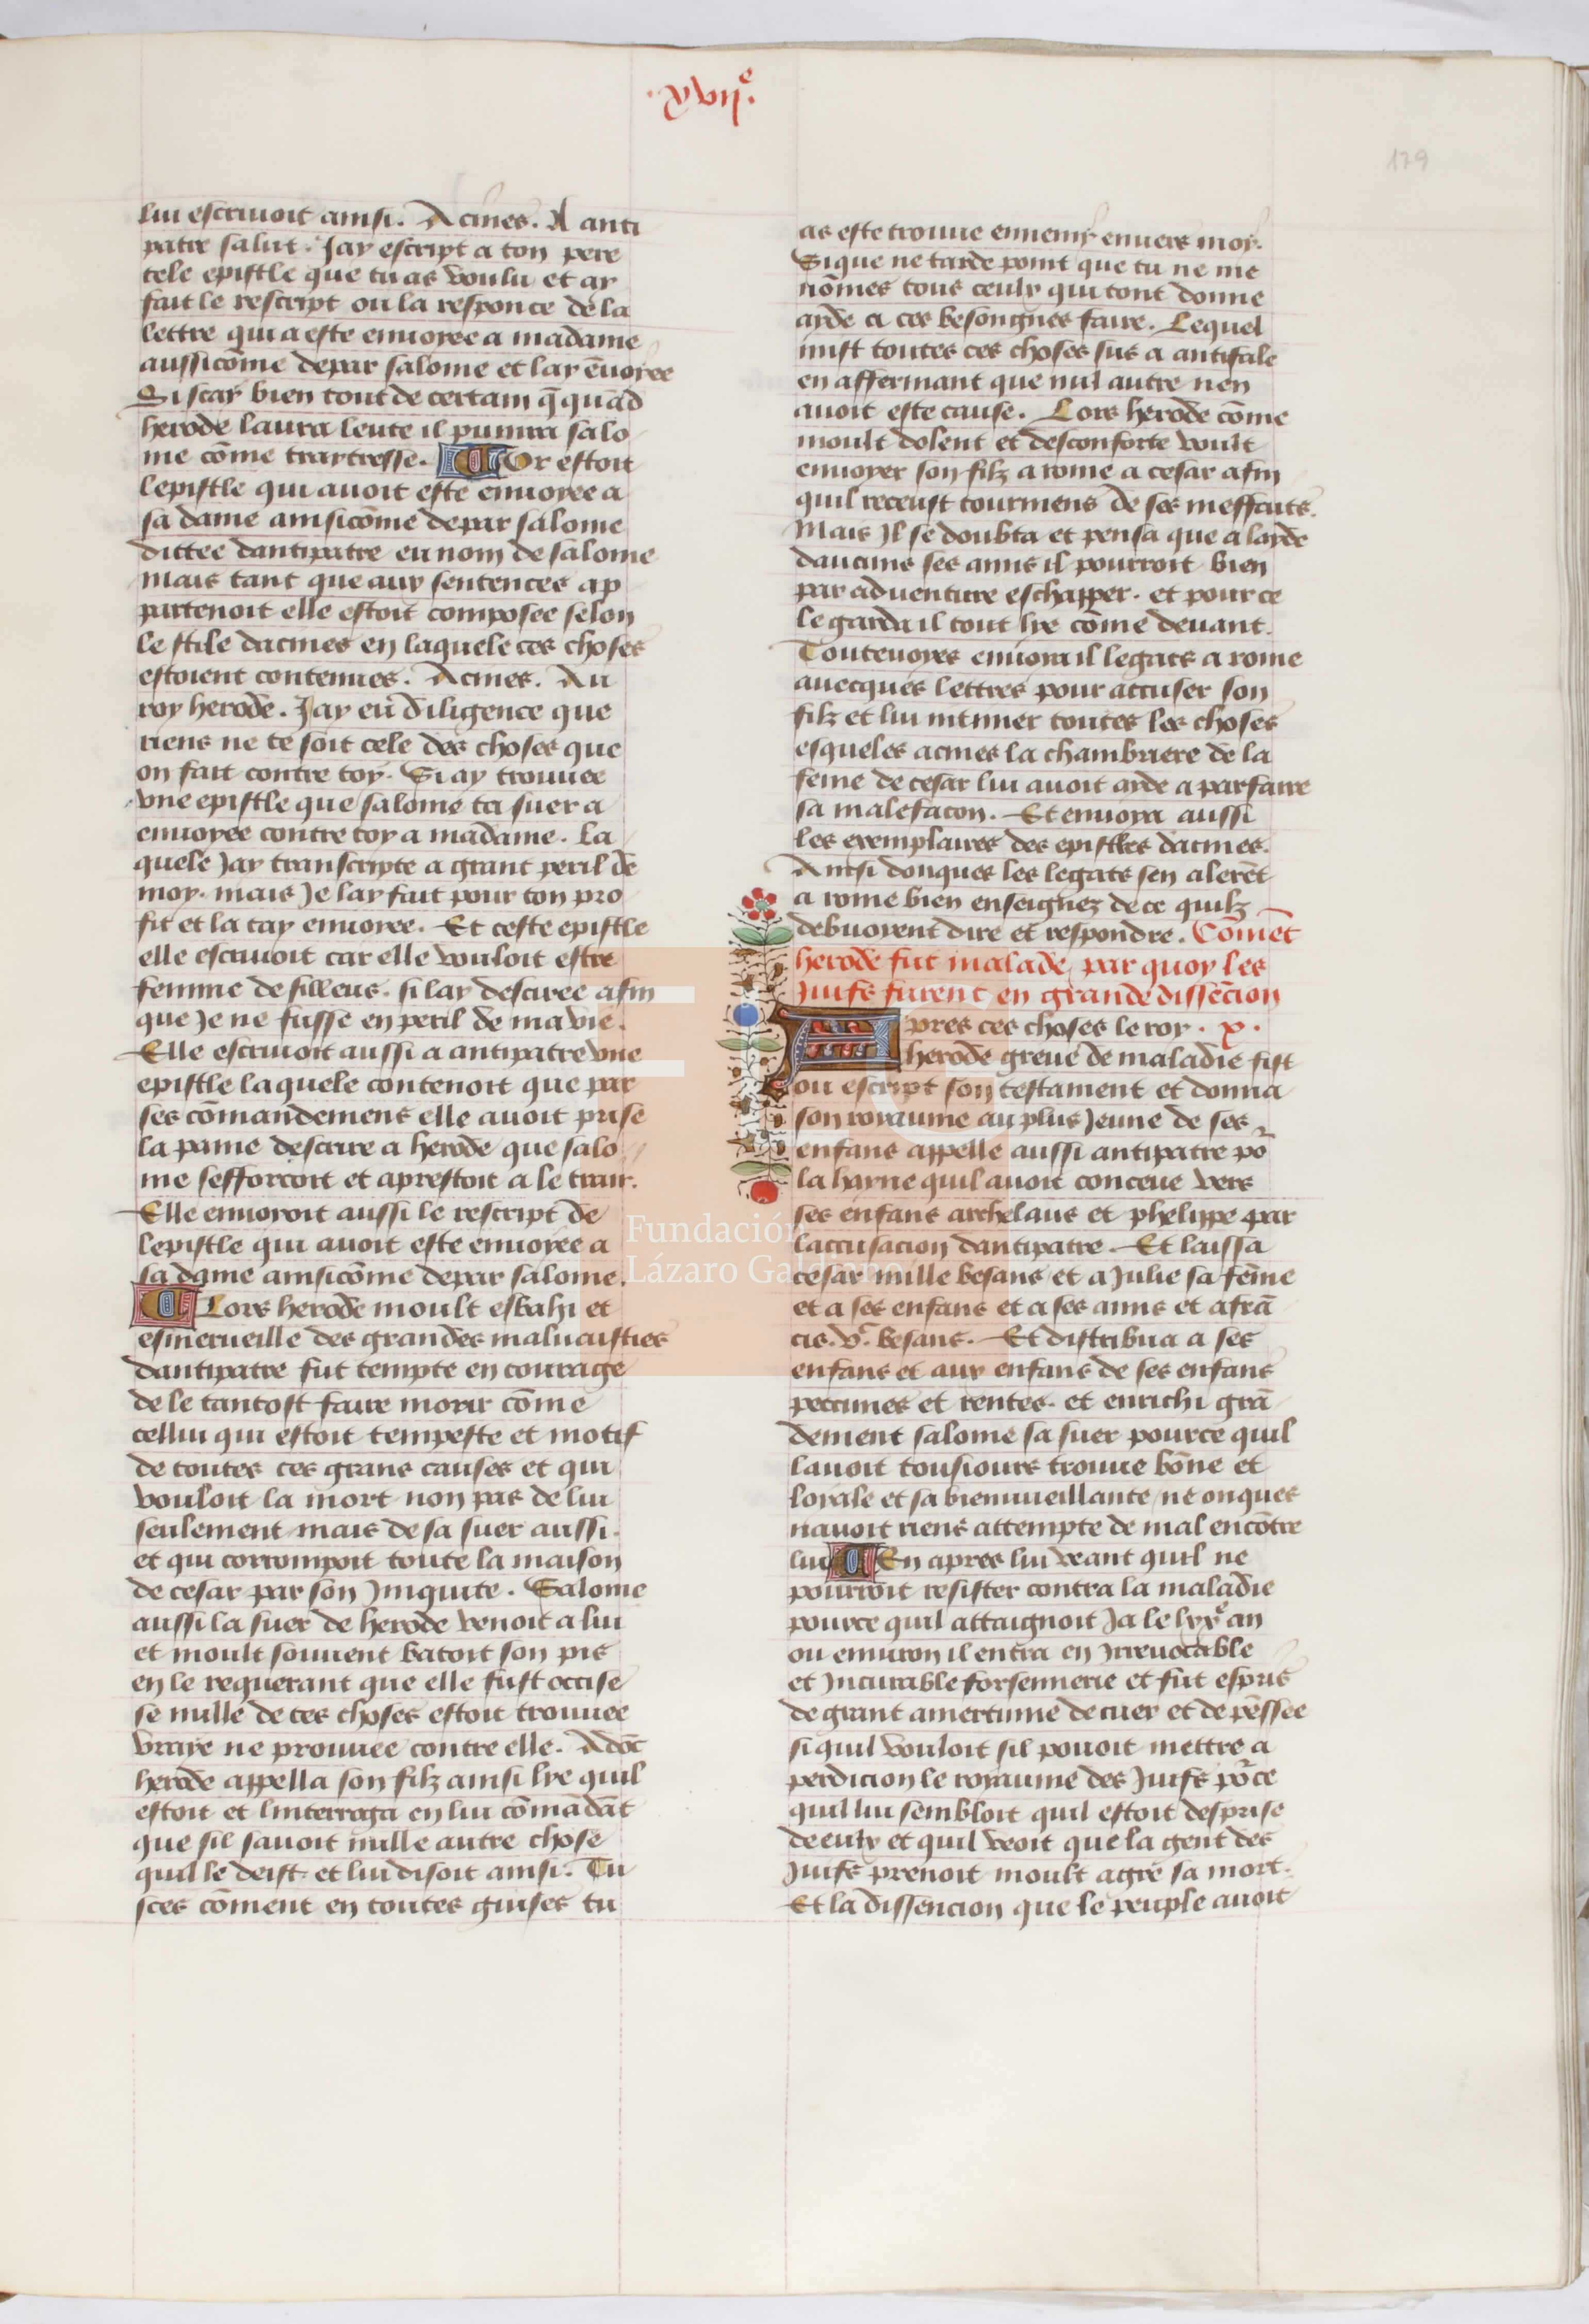 .xvii.e
179
lui escriuoit ainsi. Acmes. A anti
patre salut. Jay escript a ton pere
tele epistle que tu as voulu et ay
fait le rescript ou la responce de la
lettre qui a este enuoyee a madame
aussicōme depar salome et lay ēuoyee
Si scay bien tout de certain q̄ quād
herode laura leute il punira salo
me cōme traytresse. Or estoit
lepistle qui auoit este enuoyee a
sa dame ainsicōme depar salome
dittee dantipatre eu nom de salome
mais tant que aux sentences ap
partenoit elle estoit composee selon
le stile dacmes en laquele ces choses
estoient contenues. Acmes. Au
roy herode. Jay eu diligence que
riens ne te soit cele des choses que
on fait contre toy. Si ay trouuee
vne epistle que salome ta suer a
enuoyee contre toy a madame. La
quele Jay transcripte a grant peril de
moy. mais Je lay fait pour ton pro
fit et la tay enuoyee. Et ceste epistle
elle escriuoit car elle vouloit estre
femme de silleus. si lay desciree afin
que Je ne fusse en peril de ma vie.
Elle escriuoit aussi a antipatre vne
epistle laquele contenoit que par
ses cōmandemens elle auoit prise
la paine descrire a herode que salo
me sefforcoit et aprestoit a le trair.
Elle enuoyoit aussi le rescript de
lepistle qui auoit este enuoyee a
sa dame ainsicōme depar salome.
Lors herode moult esbahi et
esmerueille des grandes mauuaisties
dantipatre fut tempte en courage
de le tantost faire morir cōme
cellui qui estoit tempeste et motif
de toutes ces grans causes et qui
vouloit la mort non pas de lui
seulement mais de sa suer aussi.
et qui corrompoit toute la maison
de cesar par son Iniquite. Salome
aussi la suer de herode venoit a lui
et moult souuent batoit son pis
en le requerant que elle fust occise
se nulle de ces choses estoit trouuee
vraye ne prouuee contre elle. Adōc
herode appella son filz ainsi lye quil
estoit et linterroga en lui cōmādāt
que sil sauoit nulle autre chose
quil le deist. et lui disoit ainsi. Tu
sces cōment en toutes guises tu
as este trouue ennemy enuers moy.
Si que ne tarde point que tu ne me
nōmes tous ceulx qui tont donne
ayde a ces besongnes faire. Lequel
mist toutes ces choses sus a antifale
en affermant que nul autre nen
auoit este cause. Lors herode cōme
moult dolent et desconforte voult
enuoyer son filz a rome a cesar afin
quil receust tourmens de ses meffaits.
Mais Il se doubta et pensa que a layde
daucuns ses amis il pourroit bien
par aduenture eschapper. et pour ce
le garda il tout lye cōme deuant.
Touteuoyes enuoya il legats a rome
auecques lettres pour accuser son
filz et lui intimer toutes les choses
esqueles acmes la chambriere de la
feme de cesar lui auoit ayde a parfaire
sa malefacon. Et enuoya aussi
les exemplaires des epistles dacmes.
Ainsi donques les legats sen alerēt
a rome bien enseignez de ce quilz
debuoyent dire et respondre. Cōmēt
herode fut malade par quoy les
Juifs furent en grande dissēcion
Apres ces choses le roy .x.
herode greue de maladie fist
ou escript son testament et donna
son royaume au plus Jeune de ses
enfans appelle aussi antipatre po᷒
la hayne quil auoit conceue vers
ses enfans archelaus et phelippe par
laccusacion dantipatre. Et laissa
cesar mille besans et a Julie sa fēme
et a ses enfans et a ses amis et a frā
cis .v.c besans. Et distribua a ses
enfans et aux enfans de ses enfans
peccunes et rentes. et enrichi grā
dement salome sa suer pource quil
lauoit tousiours trouue bōne et
loyale et sa bienuueillante ne onques
nauoit riens attempte de mal encōtre
lui En apres lui veant quil ne
pourroit resister contra la maladie
pource quil attaignoit Ja le lxx.e an
ou enuiron il entra en Irreuocable
et Incurable forsennerie et fut espris
de grant amertume de cuer et de pēssee
si quil vouloit sil pouoit mettre a
perdicion le royaume des Juifs po᷒ce
quil lui sembloit quil estoit desprise
deeulx et quil veoit que la gent des
Juifs prenoit moult agre sa mort.
Et la dissencion que le peuple auoit
Fundación
Lázaro Galdiano